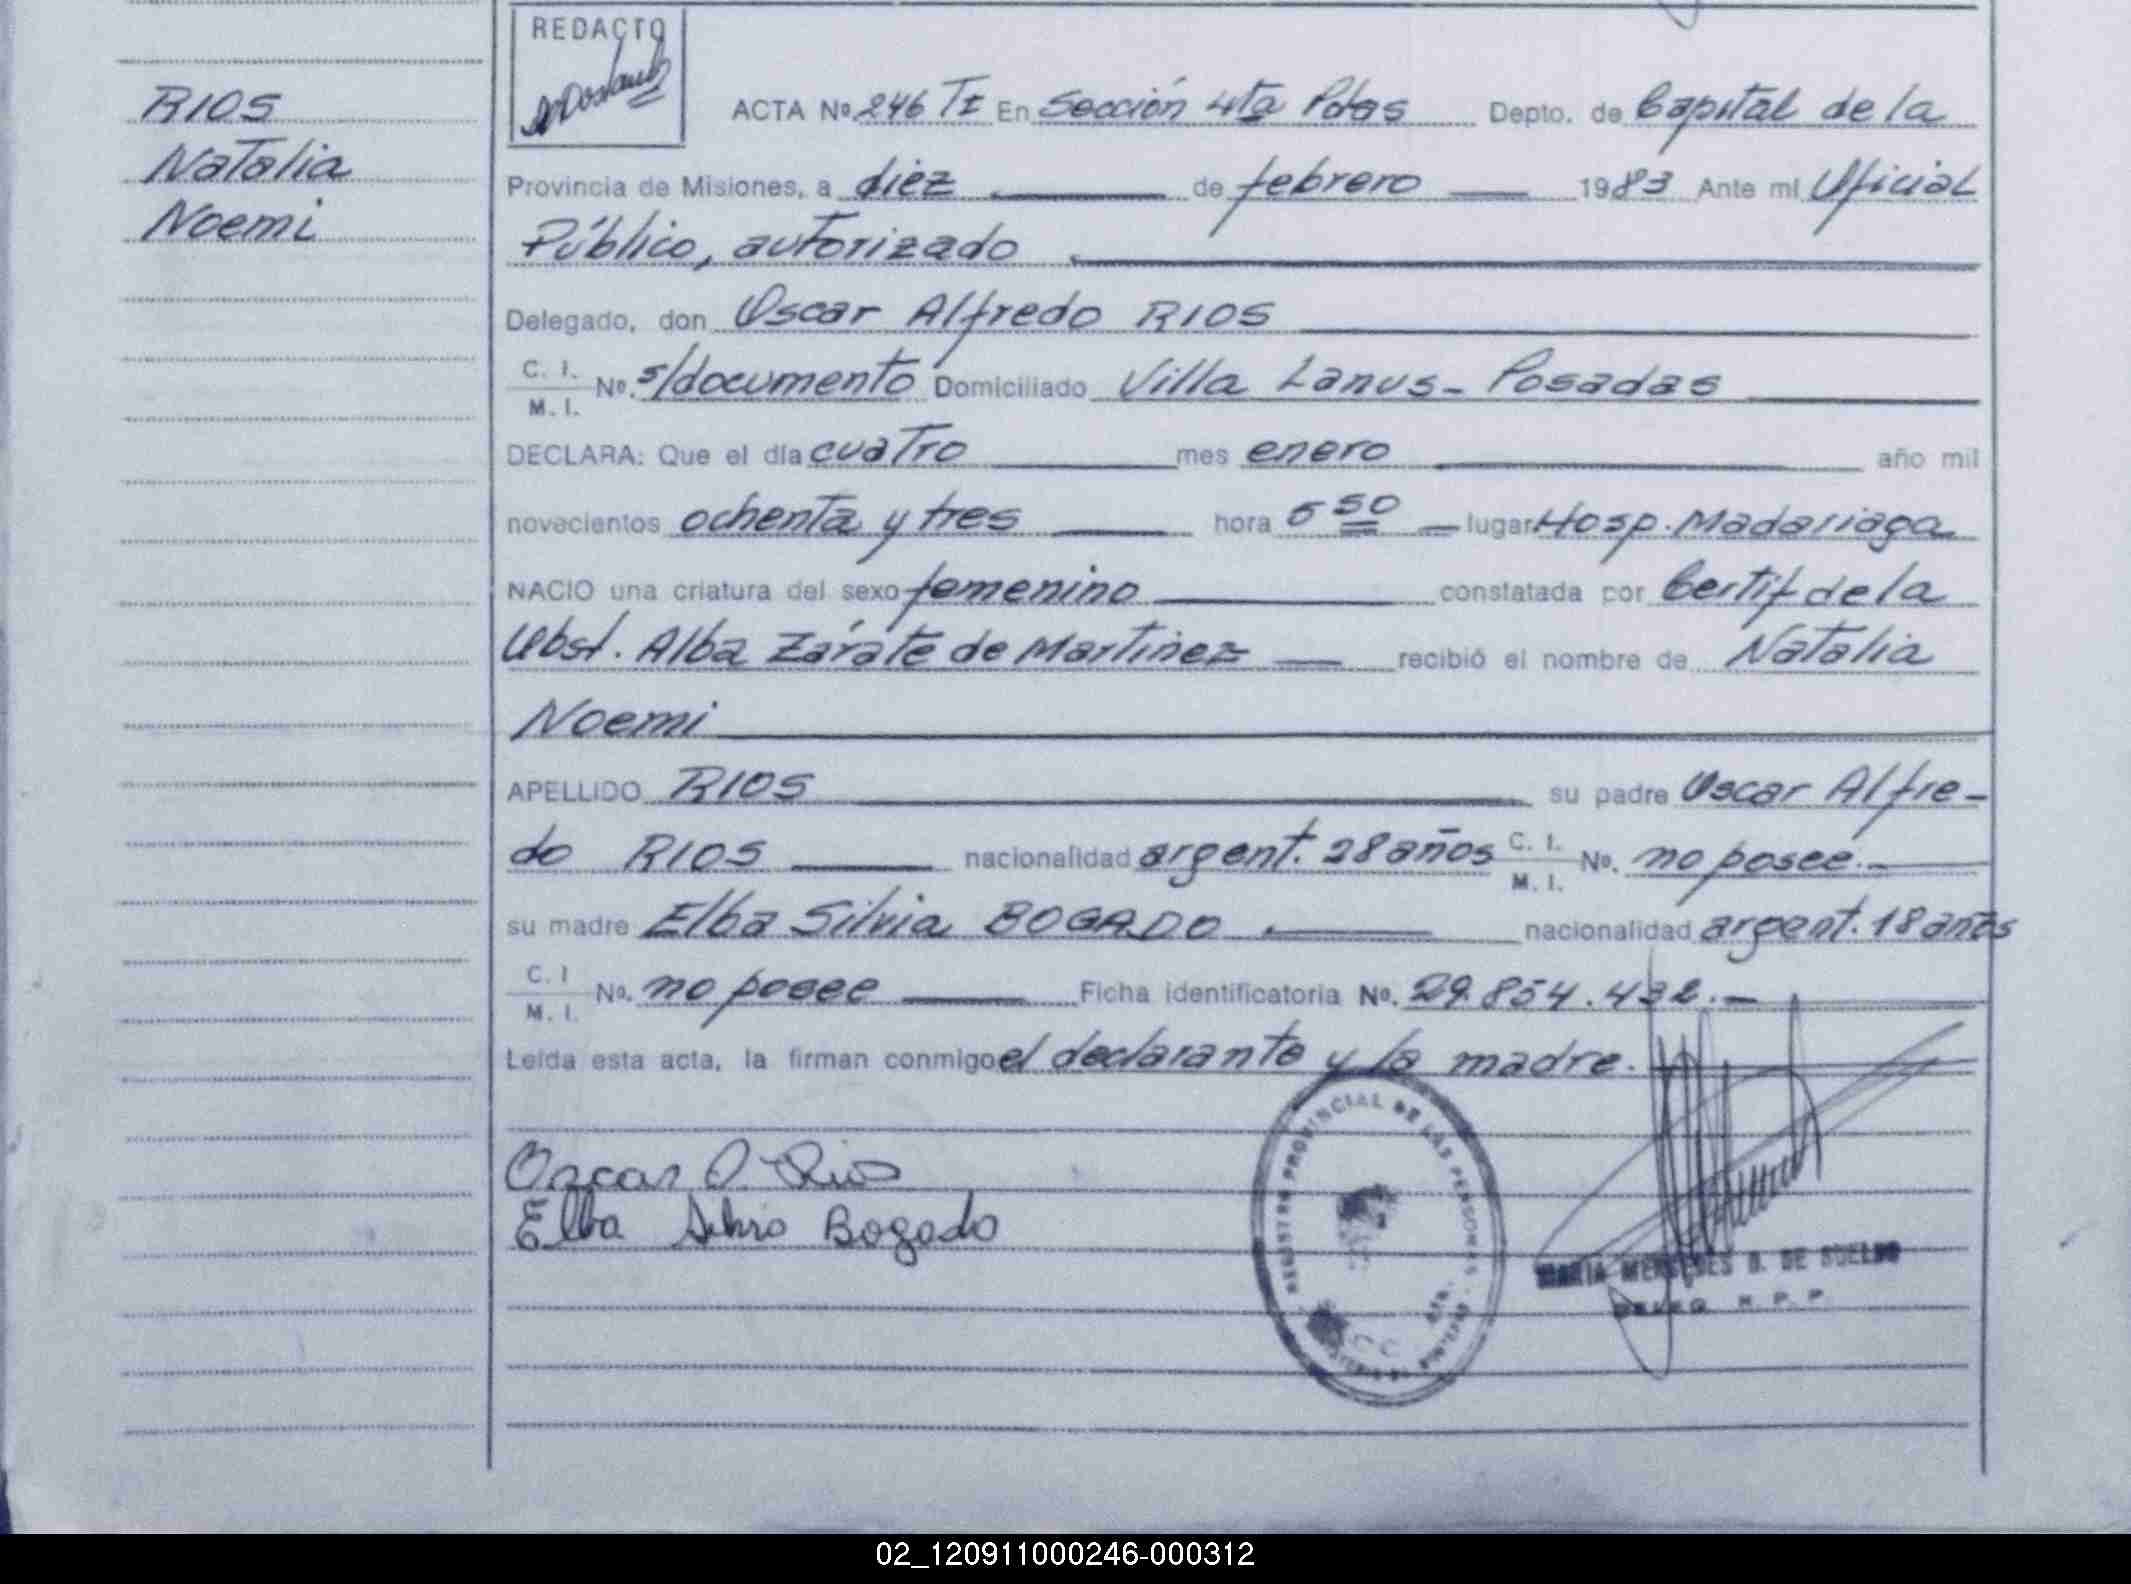 REDACTO
RIOS
Natalia
Noemi
ACTA Nº 246 TI En Sección 4ta Pdas Depto. de Capital de la
Provincia de Misiones, a diez de febrero 1983 Ante mi Oficial
Público, autorizado
Delegado, don Oscar Alfredo RIOS
C. I.
M. I. Nº. s/documento Domiciliado Villa Lanus - Posadas
DECLARA: Que el día cuatro mes enero año mil
novecientos ochenta y tres hora 5 50 lugar Hosp. Madariaga
NACIO una criatura del sexo femenino constatada por Certif de la
Obst. Alba Zárate de Martinez recibió el nombre de Natalia
Noemi
APELLIDO RIOS su padre Oscar Alfre-
do RIOS nacionalidad argent. 28 años C. I. M. I. Nº. no posee.-
su madre Elba Silvia BOGADO nacionalidad argent. 18 años
C. I M. I. Nº. no posee Ficha identificatoria Nº. 29.854.432.-
Leída esta acta, la firman conmigo el declarante y la madre.
Oscar A. Rios
Elba Silvia Bogado
REGISTRO PROVINCIAL DE LAS PERSONAS
MARIA MERCEDES D. DE
R. P. P.
02_120911000246-000312